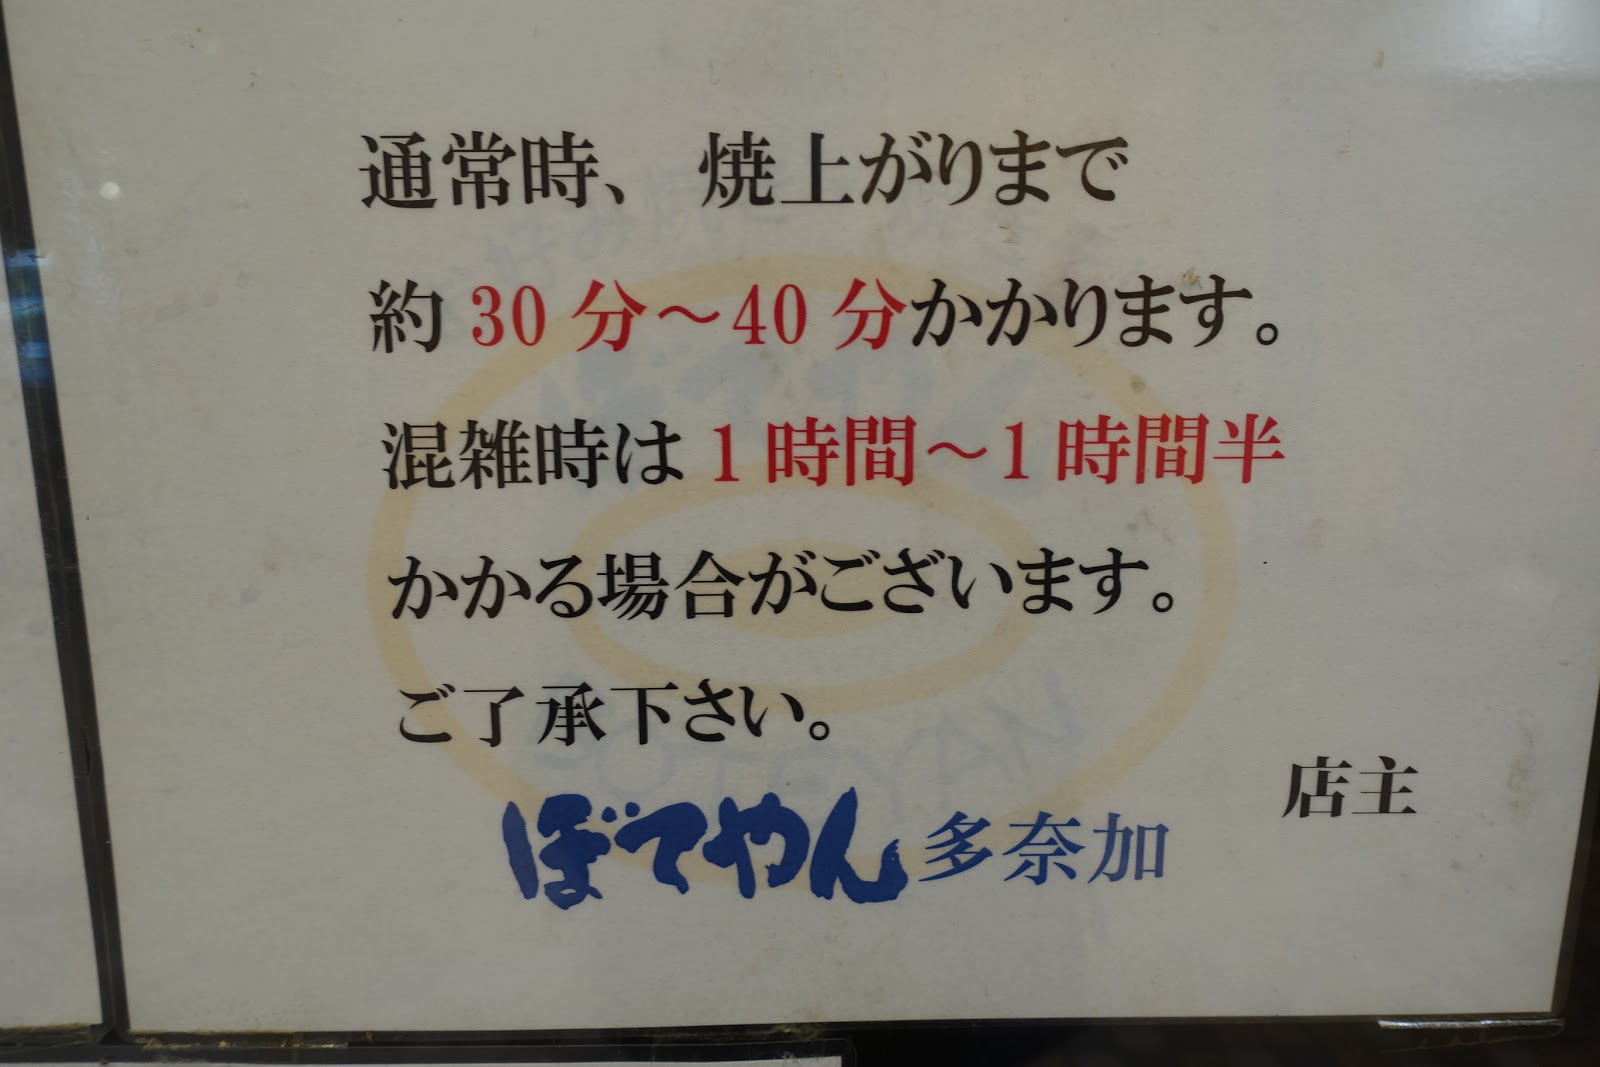 通常時、 焼上がりまで
約 30 分～40 分かかります。
混雑時は 1 時間～1 時間半
かかる場合がございます。
ご了承下さい。
店主
ぼてやん多奈加